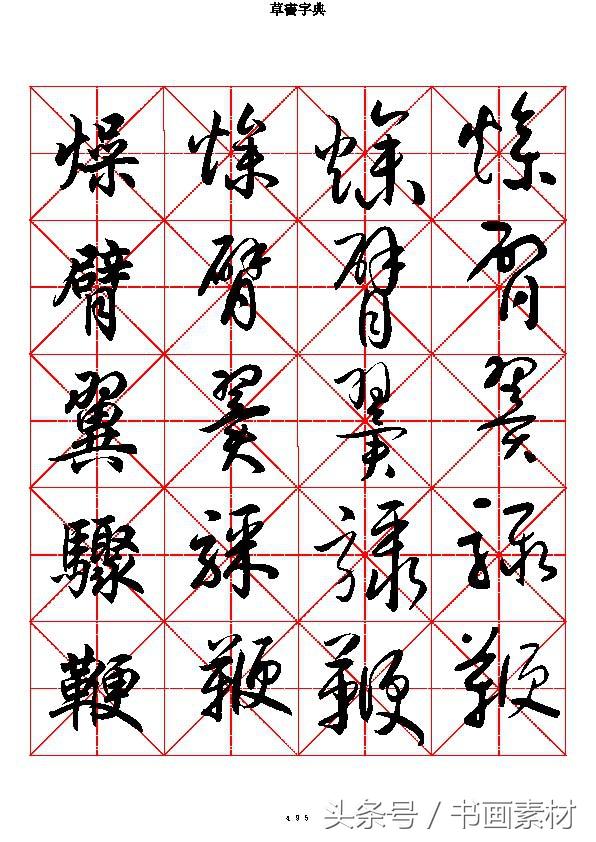 草書字典
燥 燥 燥 燥
臂 臂 臂 臂
翼 翼 翼 翼
驟 驟 驟 驟
鞭 鞭 鞭 鞭
495
头条号 / 书画素材